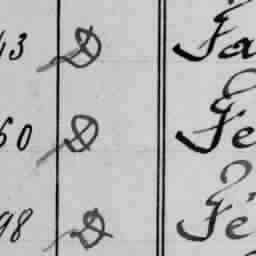 43 D Fa
60 D Fe
98 D Fé